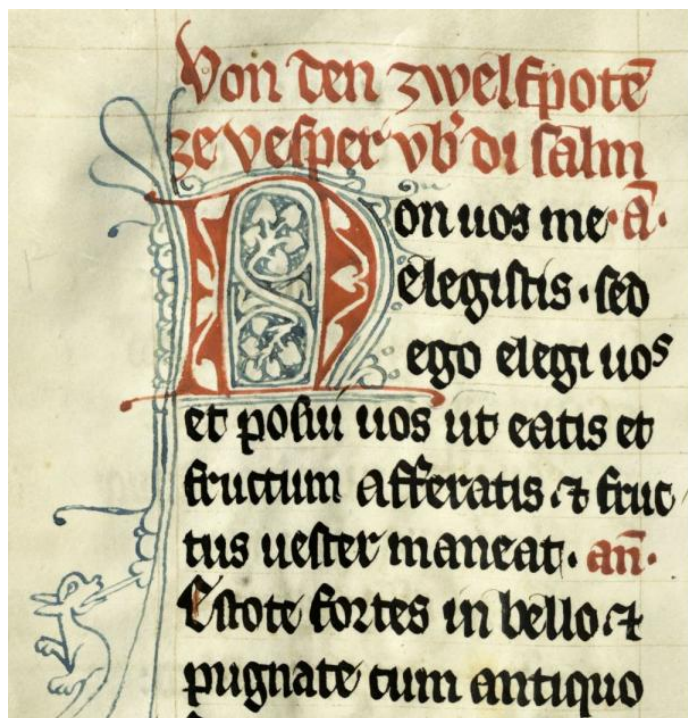 Von den zwelfpotē
ze vesper vb̕ di salm
Non uos me·ā·
elegistis·sed
ego elegi uos
et posui uos ut eatis et
fructum afferatis·⁊ fruc
tus uester maneat·an̄·
Estote fortes in bello·⁊
pugnate cum antiquo